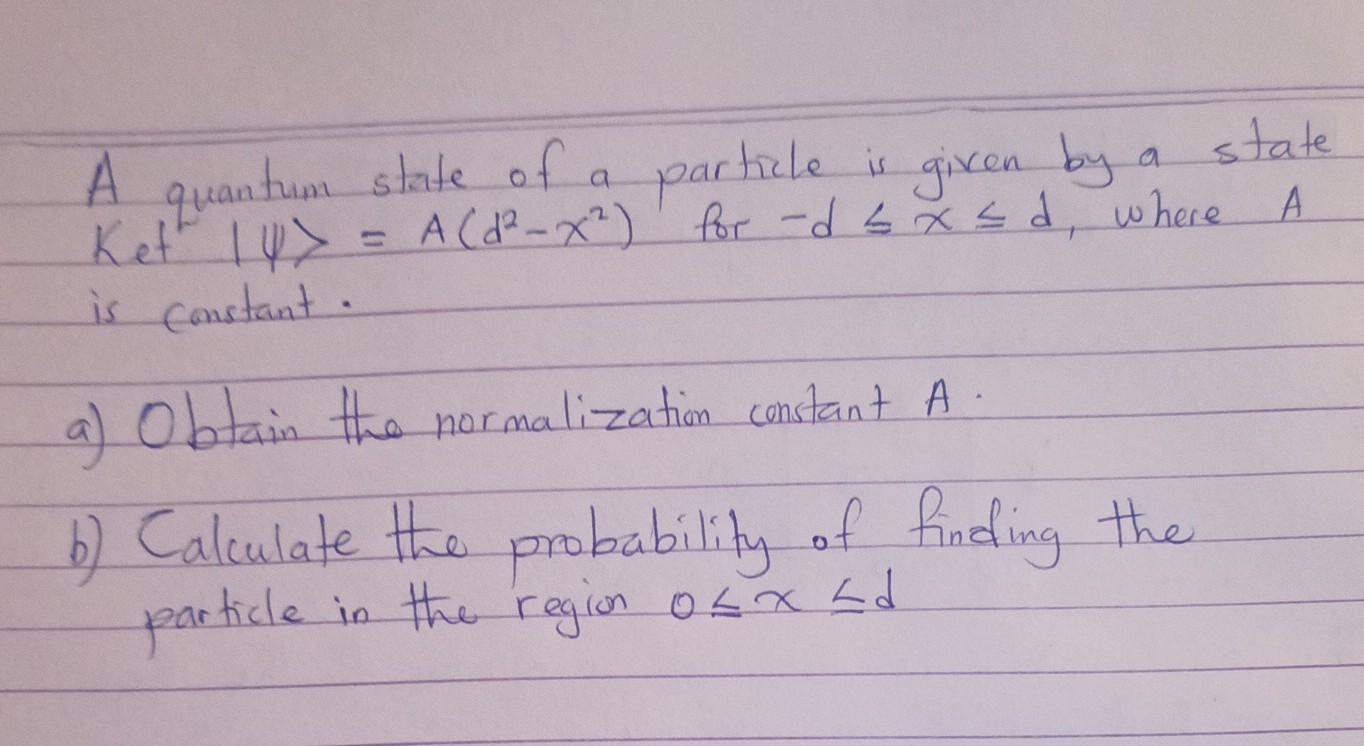 A quantum state of a particle is given by a state
Ket |ψ> = A(d²-x²) for -d ≤ x ≤ d, where A
is constant.
a) Obtain the normalization constant A.
b) Calculate the probability of finding the
particle in the region 0 ≤ x ≤ d